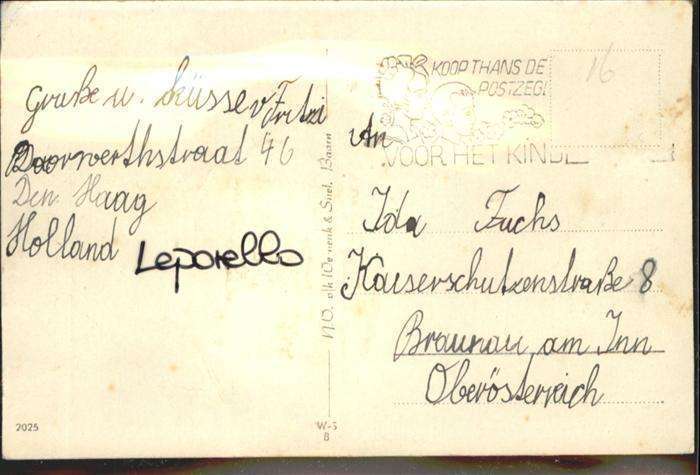 Grüße u. Küsse v Fritzi
Doorwerthstraat 46
Den Haag
Holland
Leporello
KOOP THANS DE
POSTZEG
VOOR HET KIND
16
An
Ida Fuchs
Kaiserschutzenstraße 8
Braunau am Inn
Oberösterreich
2025
W-S
B